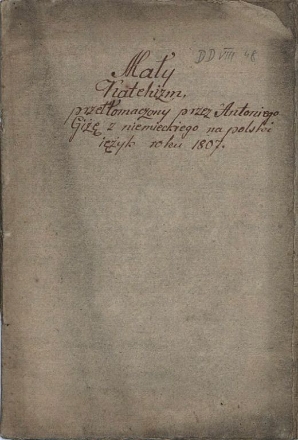 DD VIII 48
Mały
Katehizm,
przetłomaczony przez Antoniego
Giżę z niemieckiego na polski
ięzyk roku 1807.